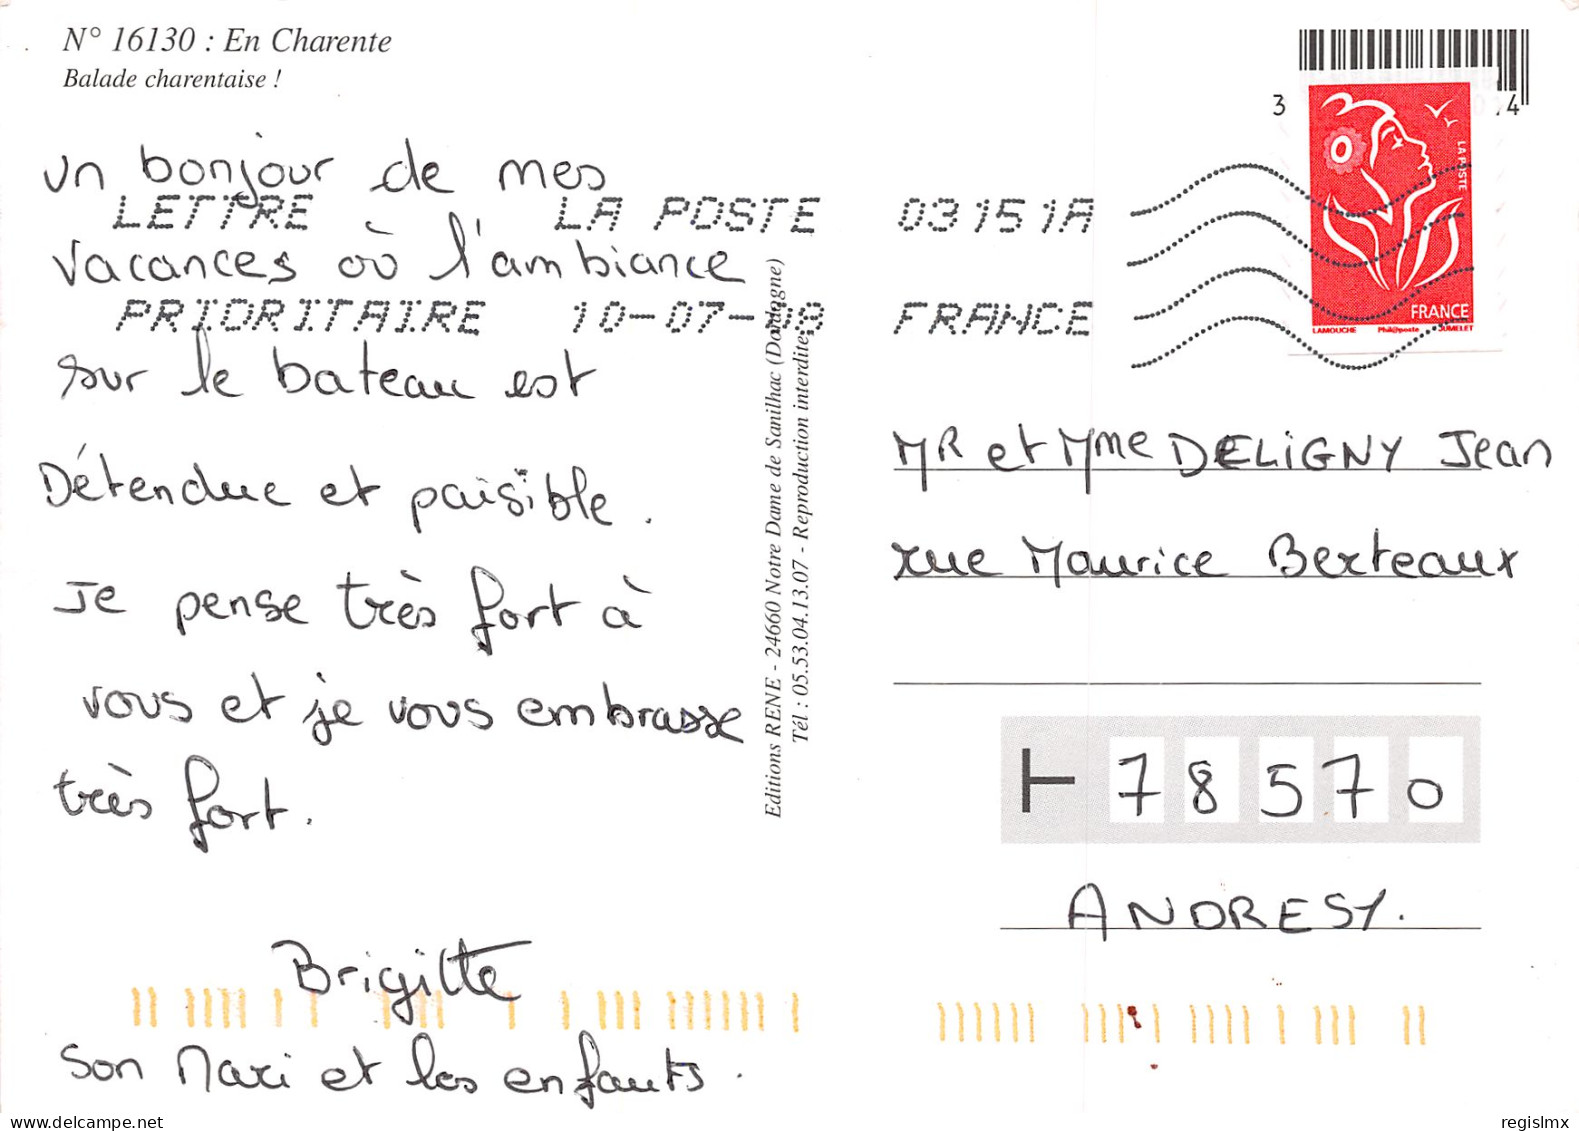 N° 16130 : En Charente
Balade charentaise !
un bonjour de mes
vacances où l'ambiance
sur le bateau est
Détendue et paisible.
Je pense très fort à
vous et je vous embrasse
très fort.
Brigitte
son Mari et les enfants.
LETTRE LA POSTE 03151A
PRIORITAIRE 10-07-08 FRANCE
Editions RENE - 24660 Notre Dame de Sanilhac (Dordogne)
Tél : 05.53.04.13.07 - Reproduction interdite
3 4
LA POSTE
FRANCE
LAMOUCHE Phil@poste JUMELET
MR et Mme DELIGNY Jean
rue Maurice Berteaux
78570
ANDRESY.
regislmx
delcampe.net